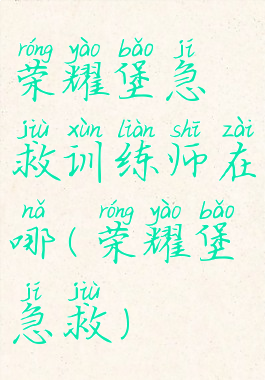 róng yào bǎo jí
荣耀堡急
jiù xùn liàn shī zài
救训练师在
nǎ róng yào bǎo
哪(荣耀堡
jí jiù
急救)